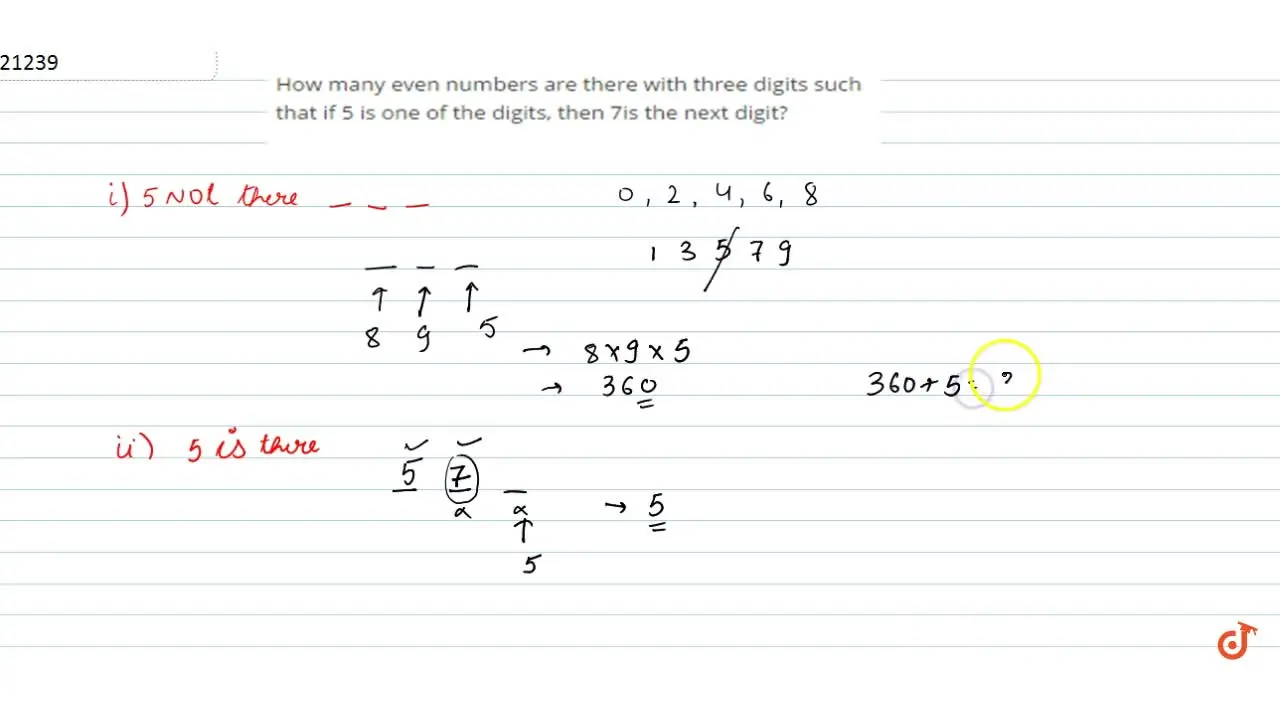 21239
How many even numbers are there with three digits such
that if 5 is one of the digits, then 7is the next digit?
i) 5 Not there _ _ _
0, 2, 4, 6, 8
1 3 5 7 9
8 9 5
→ 8 × 9 × 5
→ 360
360 + 5 =
ii) 5 is there
5 7 _
→ 5
5